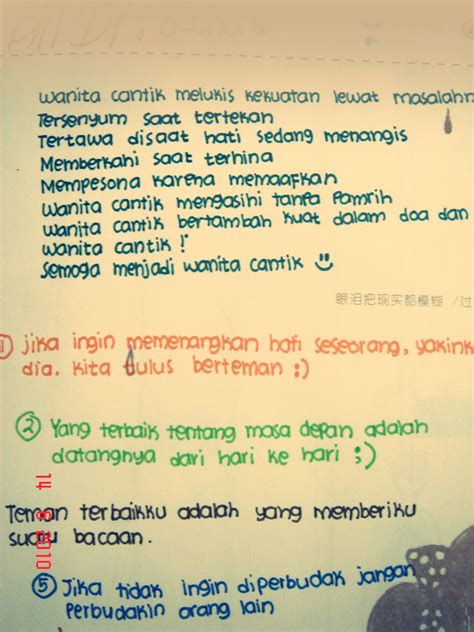 wanita cantik melukis kekuatan lewat masalahn
Tersenyum saat tertekan
Tertawa disaat hati sedang menangis
Memberkahi saat terhina
Mempesona karena memaafkan
wanita cantik mengasihi tanpa pamrih
wanita cantik bertambah kuat dalam doa dan
wanita cantik !
Semoga menjadi wanita cantik
眼泪把现实都模糊 /过
① jika ingin memenangkan hati seseorang, yakink
dia. kita tulus berteman :)
② Yang terbaik tentang masa depan adalah
datangnya dari hari ke hari ;)
Teman terbaikku adalah yang memberiku
suatu bacaan.
⑤ Jika tidak ingin diperbudak jangan
perbudakin orang lain